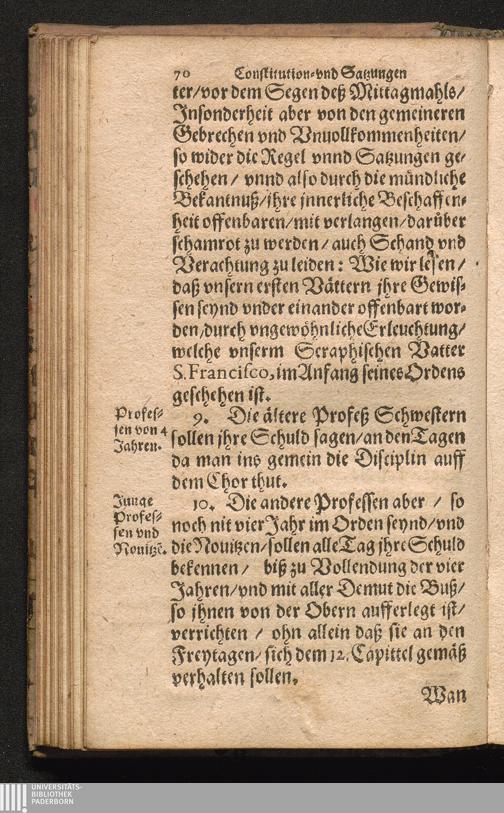 70 Constitution-vnd Satzungen
ter/vor dem Segen deß Mittagmahls/
Jnsonderheit aber von den gemeineren
Gebrechen vnd Vnuollkommenheiten/
so wider die Regel vnnd Satzungen ge-
schehen / vnnd also durch die mündliche
Bekantnuß/jhre jnnerliche Beschaffen-
heit offenbaren/mit verlangen/darüber
schamrot zu werden/auch Schand vnd
Verachtung zu leiden: Wie wir lesen/
daß vnsern ersten Vättern jhre Gewis-
sen seynd vnder einander offenbart wor-
den/durch vngewöhnliche Erleuchtung/
welche vnserm Seraphischen Vatter
S. Francisco, im Anfang seines Ordens
geschehen ist.
Profes-
sen von 4
Jahren.
9. Die ältere Profeß Schwestern
sollen jhre Schuld sagen/an den Tagen
da man ins gemein die Disciplin auff
dem Chor thut.
Junge
Profes-
sen vnd
Nouitzē.
10. Die andere Professen aber / so
noch nit vier Jahr im Orden seynd/vnd
die Nouitzen/sollen alle Tag jhre Schuld
bekennen / biß zu Vollendung der vier
Jahren/vnd mit aller Demut die Buß/
so jhnen von der Obern aufferlegt ist/
verrichten / ohn allein daß sie an den
Freytagen/sich dem 12. Capittel gemäß
verhalten sollen.
Wan
UNIVERSITÄTS-
BIBLIOTHEK
PADERBORN